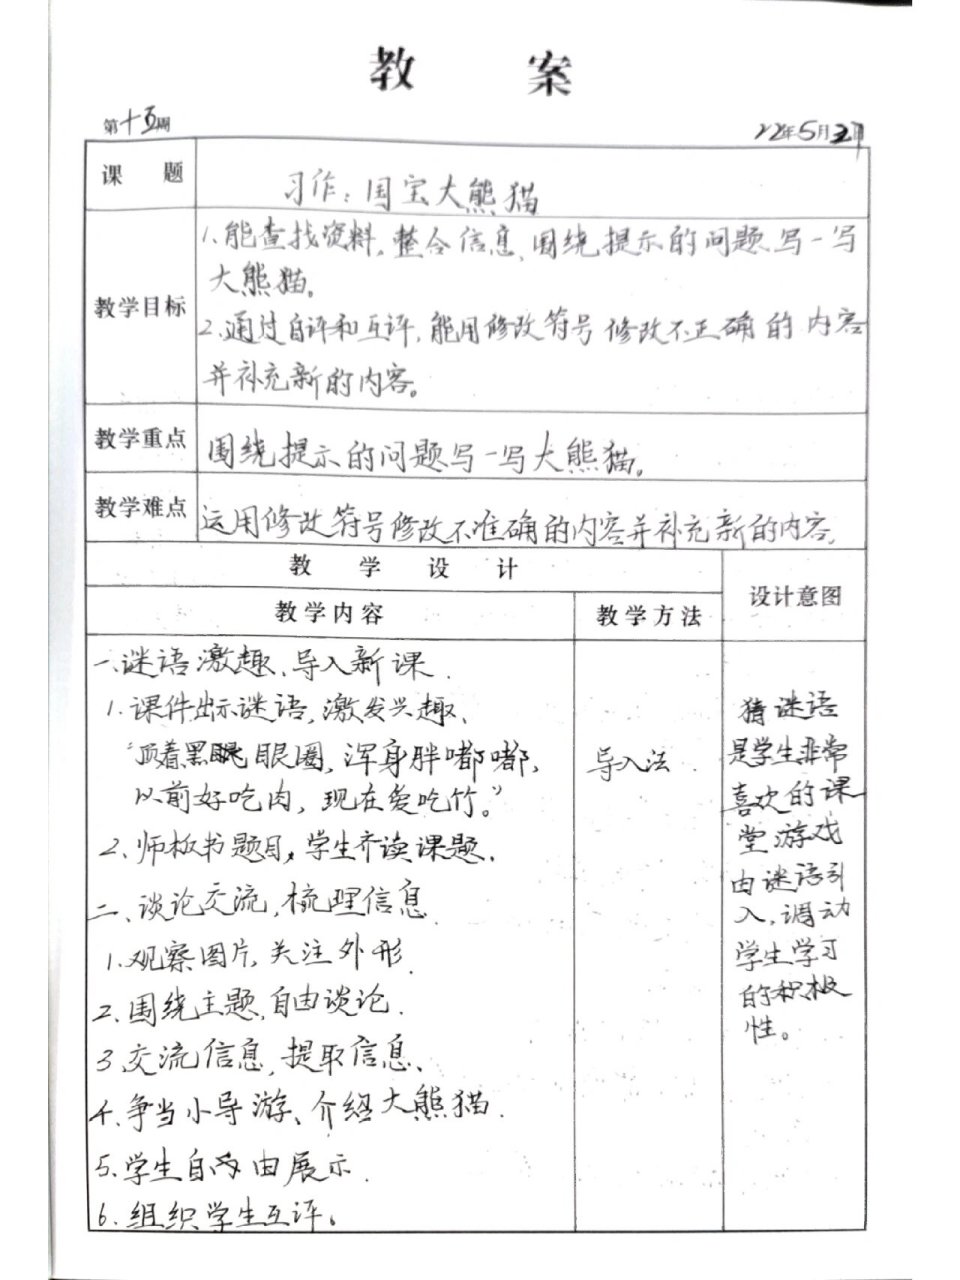 教 案
第十五周
22年5月
课 题
习作：国宝大熊猫
教学目标
1.能查找资料，整合信息，围绕提示的问题写一写
大熊猫。
2.通过自评和互评，能用修改符号修改不正确的内容
并补充新的内容。
教学重点
围绕提示的问题写一写大熊猫。
教学难点
运用修改符号修改不准确的内容并补充新的内容。
教 学 设 计
设计意图
教学内容
教学方法
一、谜语激趣、导入新课.
1.课件出示谜语，激发兴趣、
“顶着黑眼圈，浑身胖嘟嘟，
以前好吃肉，现在爱吃竹。”
2、师板书题目，学生齐读课题.
二、谈论交流，梳理信息.
1.观察图片，关注外形.
2、围绕主题，自由谈论.
3、交流信息，提取信息、
4、争当小导游、介绍大熊猫.
5、学生自由展示.
6、组织学生互评。
导入法.
猜谜语
是学生非常
喜欢的课
堂游戏
由谜语引
入，调动
学生学习
的积极
性。